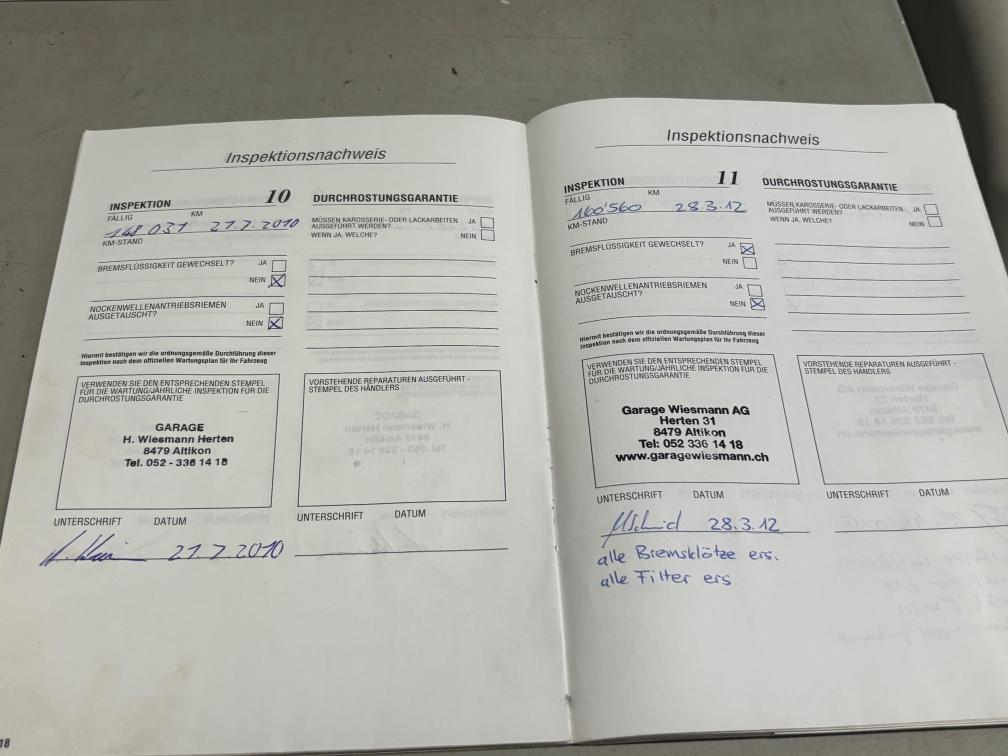 Inspektionsnachweis
INSPEKTION 10
FÄLLIG KM
148 031 21.7.2010
KM-STAND
BREMSFLÜSSIGKEIT GEWECHSELT? JA
NEIN
NOCKENWELLENANTRIEBSRIEMEN JA
AUSGETAUSCHT?
NEIN
Hiermit bestätigen wir die ordnungsgemäße Durchführung dieser
Inspektion nach dem offiziellen Wartungsplan für Ihr Fahrzeug
VERWENDEN SIE DEN ENTSPRECHENDEN STEMPEL
FÜR DIE WARTUNG/JÄHRLICHE INSPEKTION FÜR DIE
DURCHROSTUNGSGARANTIE
GARAGE
H. Wiesmann Herten
8479 Altikon
Tel. 052 - 336 14 18
UNTERSCHRIFT DATUM
21.7.2010
DURCHROSTUNGSGARANTIE
MÜSSEN KAROSSERIE- ODER LACKARBEITEN JA
AUSGEFÜHRT WERDEN?
WENN JA, WELCHE? NEIN
VORSTEHENDE REPARATUREN AUSGEFÜHRT -
STEMPEL DES HÄNDLERS
UNTERSCHRIFT DATUM
18
Inspektionsnachweis
INSPEKTION 11
FÄLLIG KM
160'560 28.3.12
KM-STAND
BREMSFLÜSSIGKEIT GEWECHSELT? JA
NEIN
NOCKENWELLENANTRIEBSRIEMEN JA
AUSGETAUSCHT?
NEIN
Hiermit bestätigen wir die ordnungsgemäße Durchführung dieser
Inspektion nach dem offiziellen Wartungsplan für Ihr Fahrzeug
VERWENDEN SIE DEN ENTSPRECHENDEN STEMPEL
FÜR DIE WARTUNG/JÄHRLICHE INSPEKTION FÜR DIE
DURCHROSTUNGSGARANTIE
Garage Wiesmann AG
Herten 31
8479 Altikon
Tel: 052 336 14 18
www.garagewiesmann.ch
UNTERSCHRIFT DATUM
28.3.12
alle Bremsklötze ers.
alle Filter ers
DURCHROSTUNGSGARANTIE
MÜSSEN KAROSSERIE- ODER LACKARBEITEN JA
AUSGEFÜHRT WERDEN?
WENN JA, WELCHE? NEIN
VORSTEHENDE REPARATUREN AUSGEFÜHRT -
STEMPEL DES HÄNDLERS
UNTERSCHRIFT DATUM